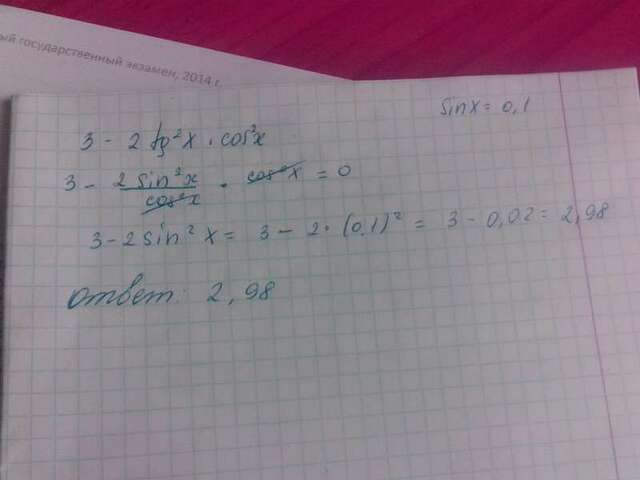 ый государственный экзамен, 2014 г.
sin x = 0,1
3 - 2 tg²x · cos²x
3 - 2 sin²x / cos²x · cos²x = 0
3 - 2 sin² x = 3 - 2 · (0,1)² = 3 - 0,02 = 2,98
ответ: 2,98